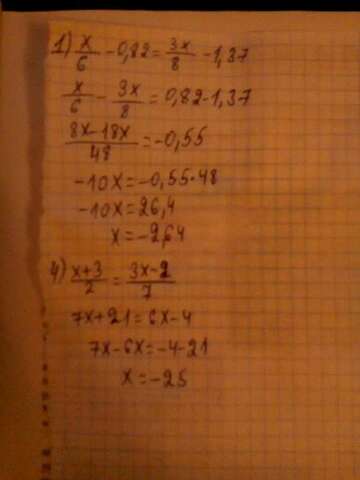 1) x/6 - 0,82 = 3x/8 - 1,37
x/6 - 3x/8 = 0,82 - 1,37
8x-18x/48 = -0,55
-10x = -0,55·48
-10x = 26,4
x = -2,64
4) x+3/2 = 3x-2/7
7x+21 = 6x-4
7x-6x = -4-21
x = -25